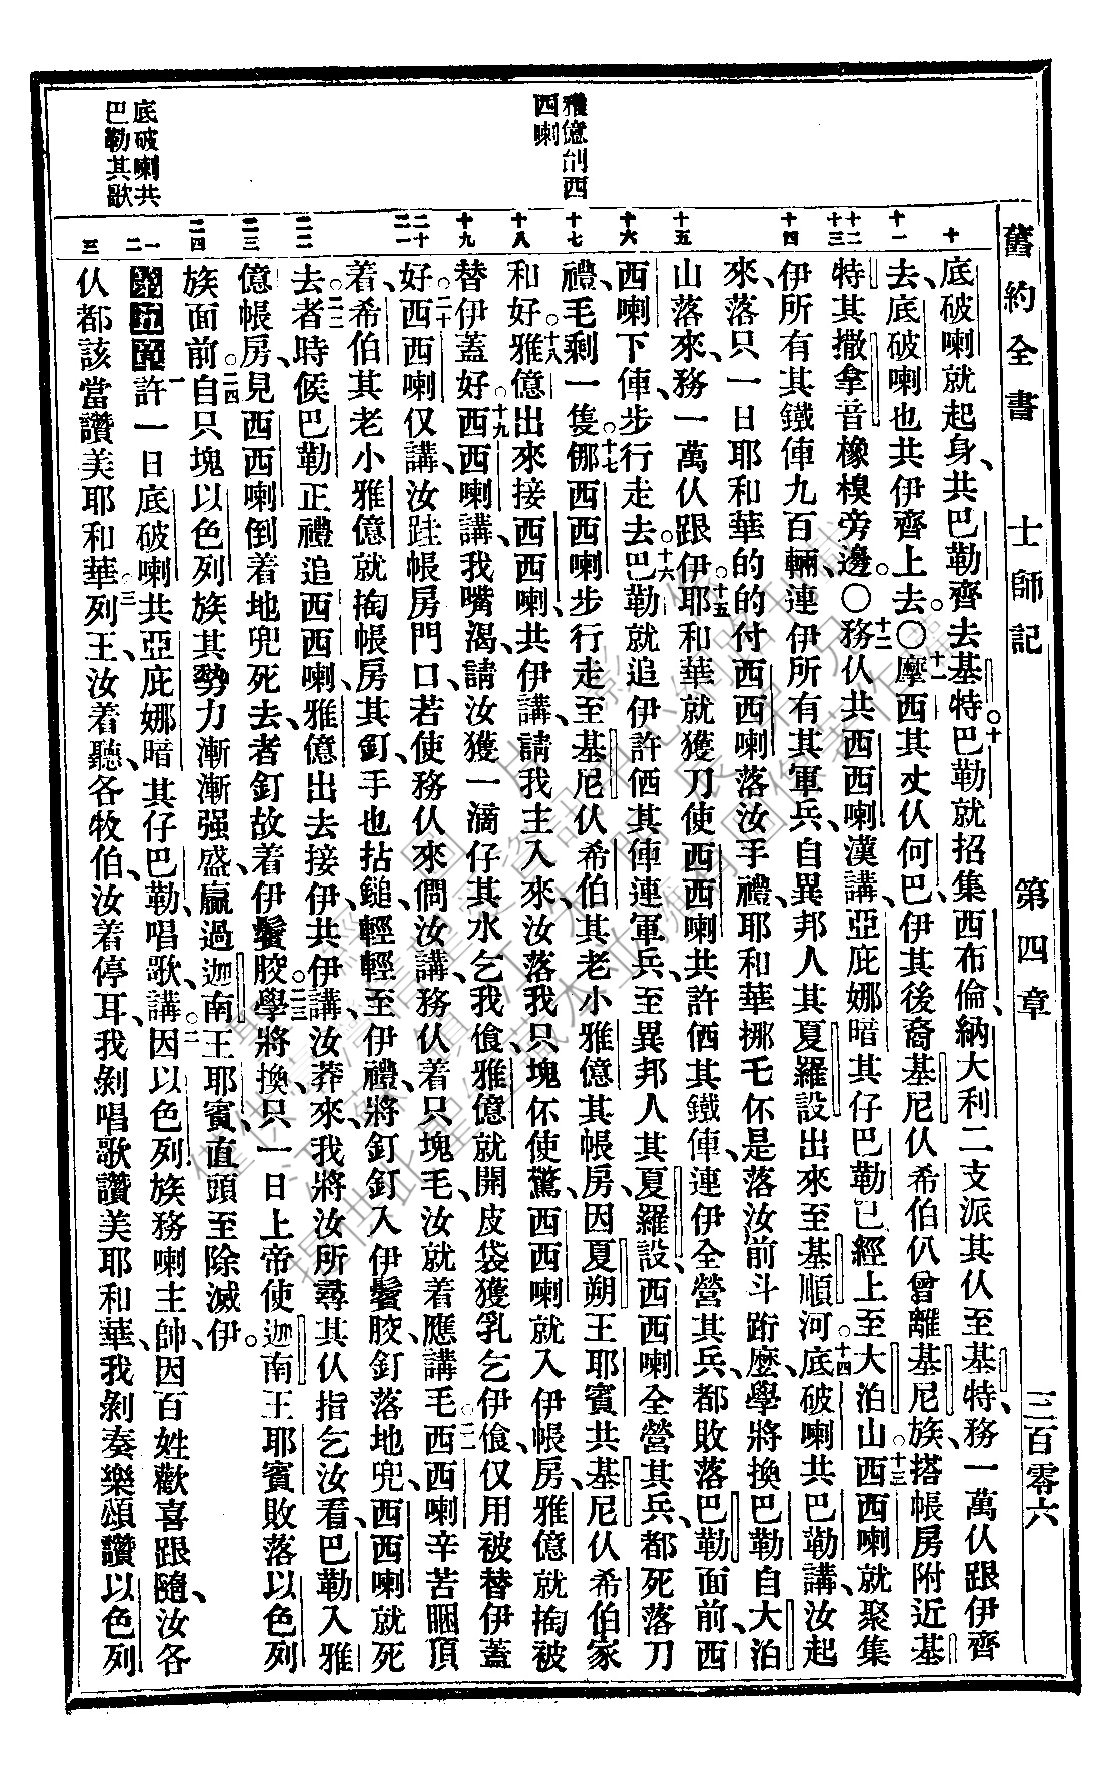 舊約全書 士師記 第四章 三百零六
雅億刣西
西喇
底破喇共
巴勒其歌
十 十一 十二 十三 十四 十五 十六 十七 十八 十九 二十 二一 二二 二三 二四 一 二 三
底破喇就起身、共巴勒齊去基特。十巴勒就招集西布倫、納大利二支派其仈至基特、務一萬仈跟伊齊
去、底破喇也共伊齊上去。○十一摩西其丈仈何巴、伊其後裔基尼仈希伯仈曾離基尼族、搭帳房附近基
特其撒拿音橡樹旁邊。○十二務仈共西西喇漢講、亞庇娜暗其仔巴勒已經上至大泊山。十三西西喇就聚集
伊所有其鐵俥九百輛、連伊所有其軍兵、自異邦人其夏羅設出來至基順河。十四底破喇共巴勒講、汝起
來、落只一日耶和華的的付西西喇落汝手禮、耶和華挪乇伓是落汝前斗跻麽、學將換巴勒自大泊
山落來、務一萬仈跟伊。十五耶和華就獲刀使西西喇共許価其鐵俥、連伊全營其兵、都敗落巴勒面前、西
西喇下俥、步行走去。十六巴勒就追伊許価其俥連軍兵、至異邦人其夏羅設、西西喇全營其兵、都死落刀
禮、毛剩一隻。十七挪西西喇步行走至基尼仈希伯其老小雅億其帳房、因夏朔王耶賓共基尼仈希伯家
和好。十八雅億出來接西西喇、共伊講、請我主入來、汝落我只塊伓使驚、西西喇就入伊帳房、雅億就掏被
替伊蓋好。十九西西喇講、我嘴渴、請汝獲一滴仔其水乞我飧、雅億就開皮袋獲乳乞伊飧、仅用被替伊蓋
好。二十西西喇仅講、汝跬帳房門口、若使務仈來問汝講、務仈着只塊毛、汝就着應講毛。二一西西喇辛苦睏頂
着、希伯其老小雅億就掏帳房其釘、手也拈鎚、輕輕至伊禮、將釘釘入伊鬢胶、釘落地兜、西西喇就死
去。二二者時候巴勒正禮追西西喇、雅億出去接伊、共伊講、汝莽來、我將汝所尋其仈指乞汝看、巴勒入雅
億帳房、見西西喇倒着地兜死去、者釘故着伊鬢胶。二三學將換只一日上帝使迦南王耶賓敗落以色列
族面前。二四自只塊以色列族其勢力漸漸强盛、贏過迦南王耶賓、直頭至除滅伊。
第五章 一許一日底破喇共亞庇娜暗其仔巴勒、唱歌講、二因以色列族務喇主帥、因百姓歡喜跟隨、汝各
仈都該當讚美耶和華。三列王、汝着聽、各牧伯、汝着停耳、我剝唱歌讚美耶和華、我剝奏樂頌讚以色列